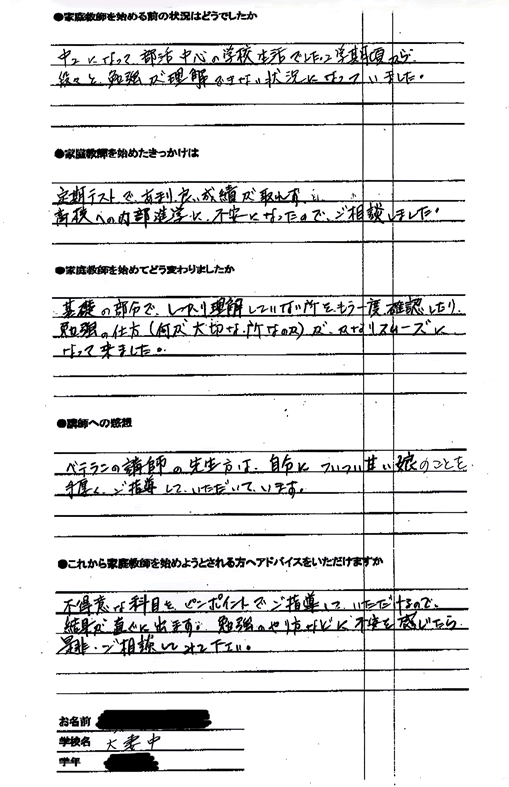 ●家庭教師を始める前の状況はどうでしたか
中2になって部活中心の学校生活でした。2学期頃から、
段々と勉強が理解できない状況になっていました。
●家庭教師を始めたきっかけは
定期テストであまり良い成績が取れず、
高校への内部進学に、不安になったので、ご相談しました。
●家庭教師を始めてどう変わりましたか
基礎の部分で、しっかり理解していない所を、もう一度確認したり、
勉強の仕方(何が大切な所なのか)が、かなりスムーズに
なって来ました。
●講師への感想
ベテランの講師の先生方は、自分に ついつい甘い娘のことを
手厚く、ご指導して、いただいています。
●これから家庭教師を始めようとされる方へアドバイスをいただけますか
不得意な科目を、ピンポイントでご指導して、いただけるので、
結果が直ぐに出ます。勉強のやり方などに不安を感じたら
是非、ご相談してみて下さい。
お名前
学校名 大妻中
学年